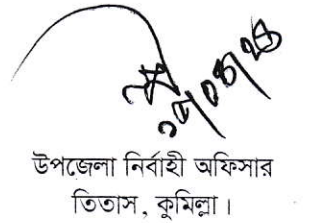 উপজেলা নির্বাহী অফিসার
তিতাস, কুমিল্লা।